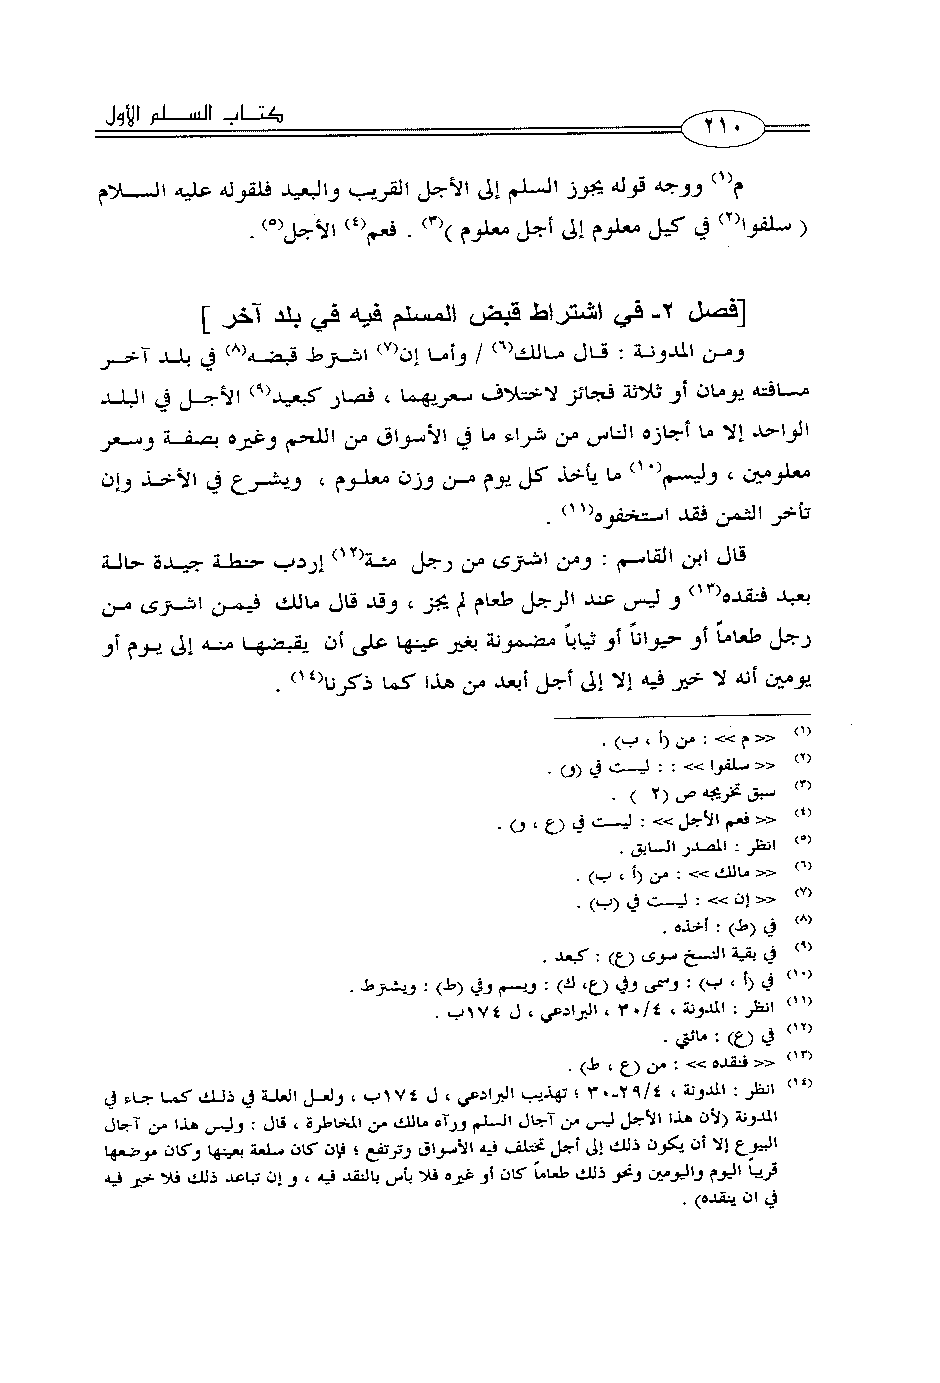 كتاب السلم الأول
٢١٠
م(١) ووجه قوله يجوز السلم إلى الأجل القريب والبعيد فلقوله عليه السلام
( سلفوا(٢) في كيل معلوم إلى أجل معلوم )(٣) . فعم(٤) الأجل(٥) .
[فصل ٢- في اشتراط قبض المسلم فيه في بلد آخر ]
ومن المدونة : قال مالك(٦) / وأما إن(٧) اشترط قبضه(٨) في بلد آخر
مسافته يومان أو ثلاثة فجائز لاختلاف سعريهما ، فصار كبعيد(٩) الأجل في البلد
الواحد إلا ما أجازه الناس من شراء ما في الأسواق من اللحم وغيره بصفة وسعر
معلومين ، وليسم(١٠) ما يأخذ كل يوم من وزن معلوم ، ويشرع في الأخذ وإن
تأخر الثمن فقد استخفوه(١١) .
قال ابن القاسم : ومن اشترى من رجل مئة(١٢) إردب حنطة جيدة حالة
بعبد فنقده(١٣) و ليس عند الرجل طعام لم يجز ، وقد قال مالك فيمن اشترى من
رجل طعاماً أو حيواناً أو ثياباً مضمونة بغير عينها على أن يقبضها منه إلى يوم أو
يومين أنه لا خير فيه إلا إلى أجل أبعد من هذا كما ذكرنا(١٤) .
(١) << م >> : من (أ ، ب) .
(٢) << سلفوا >> : : ليست في (و) .
(٣) سبق تخريجه ص (٢ ) .
(٤) << فعم الأجل >> : ليست في (ع ، و) .
(٥) انظر : المصدر السابق .
(٦) << مالك >> : من (أ ، ب) .
(٧) << إن >> : ليست في (ب) .
(٨) في (ط) : أخذه .
(٩) في بقية النسخ سوى (ع) : كبعد .
(١٠) في (أ ، ب) : وسمى وفي (ع، ك) : ويسم وفي (ط) : ويشترط .
(١١) انظر : المدونة ، ٣٠/٤ ، البرادعي ، ل ١٧٤ب .
(١٢) في (ع) : مائتي .
(١٣) << فنقده >> : من (ع ، ط) .
(١٤) انظر : المدونة ، ٢٩/٤-٣٠ ؛ تهذيب البرادعي ، ل ١٧٤ب ، ولعل العلة في ذلك كما جاء في
المدونة (لأن هذا الأجل ليس من آجال السلم ورآه مالك من المخاطرة ، قال : وليس هذا من آجال
البيوع إلا أن يكون ذلك إلى أجل تختلف فيه الأسواق وترتفع ؛ فإن كان سلعة بعينها وكان موضعها
قريباً اليوم واليومين ونحو ذلك طعاماً كان أو غيره فلا بأس بالنقد فيه ، و إن تباعد ذلك فلا خير فيه
في ان ينقده) .